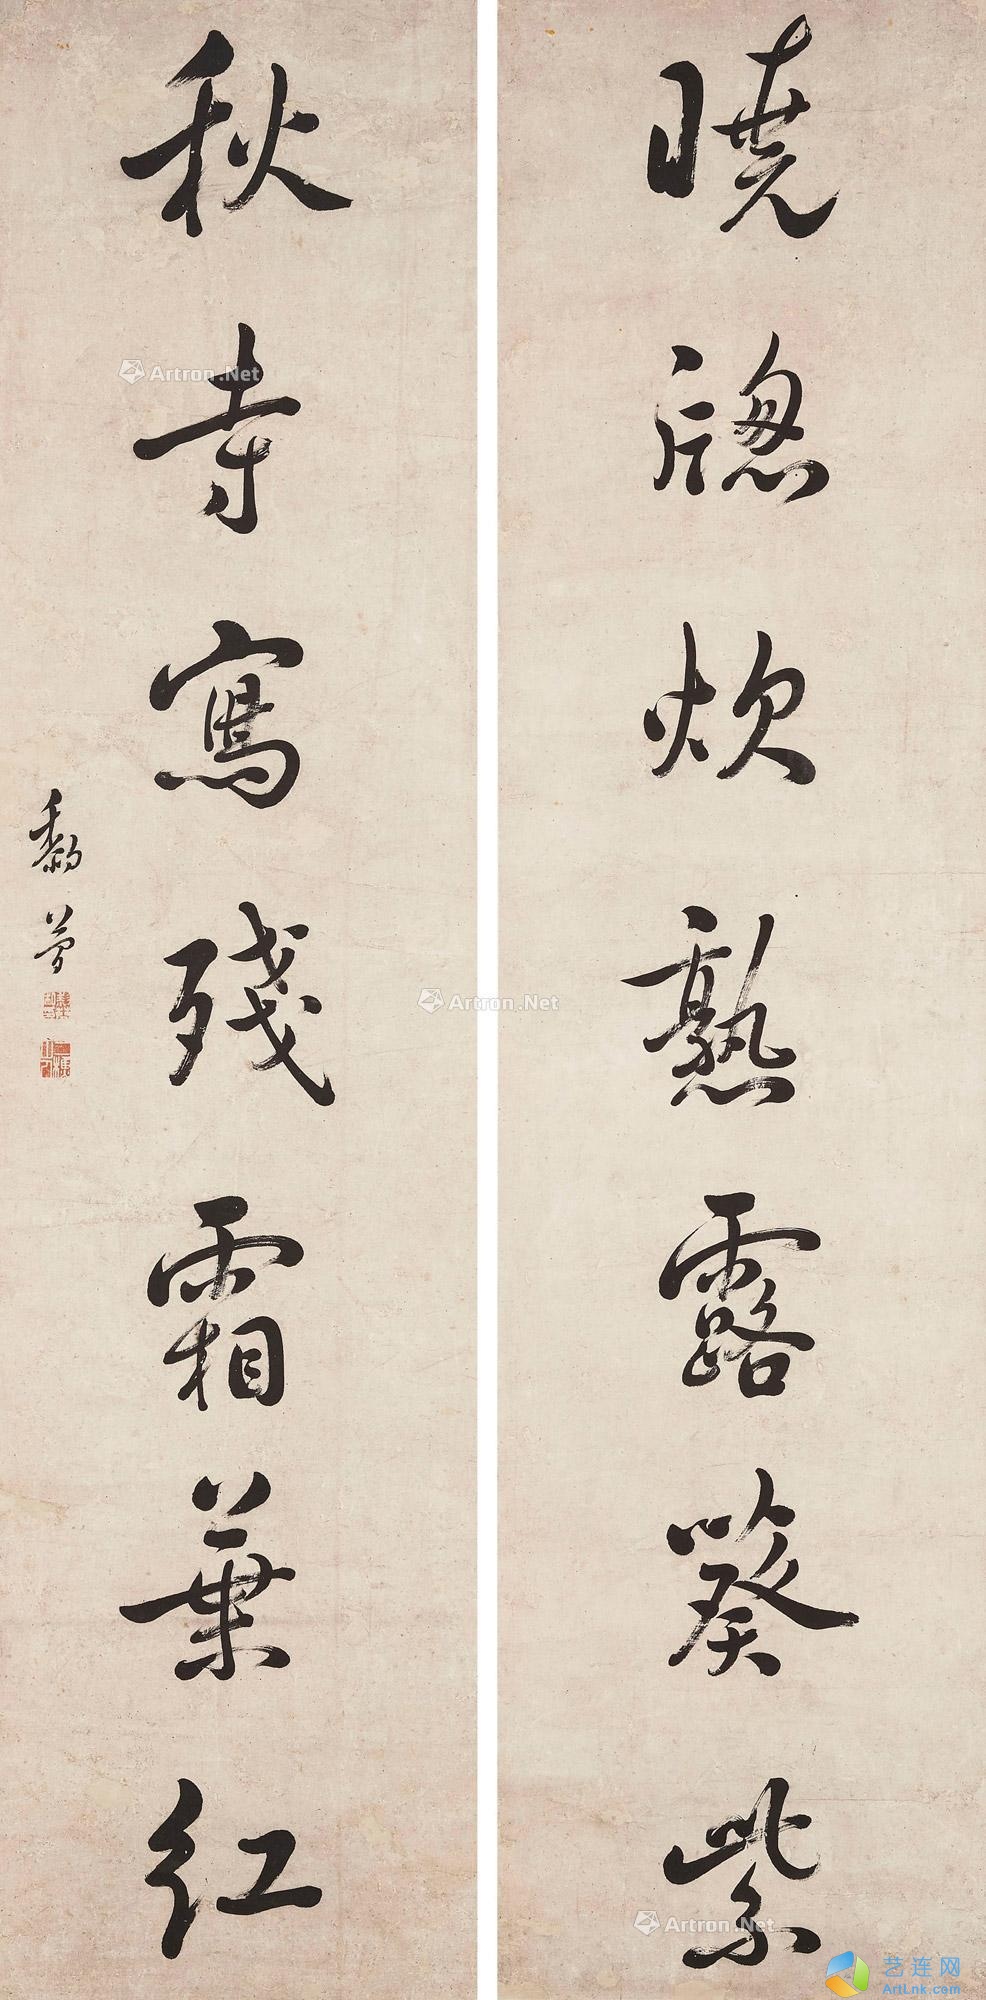 曉牕炊熟露葵紫
秋寺寫殘霜葉紅
Artron.Net
Artron.Net
Artron.Net
艺连网
ArtLnk.com